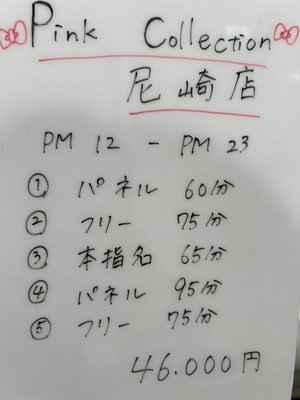 Pink Collection
尼崎店
PM 12 - PM 23
① パネル 60分
② フリー 75分
③ 本指名 65分
④ パネル 95分
⑤ フリー 75分
46.000円